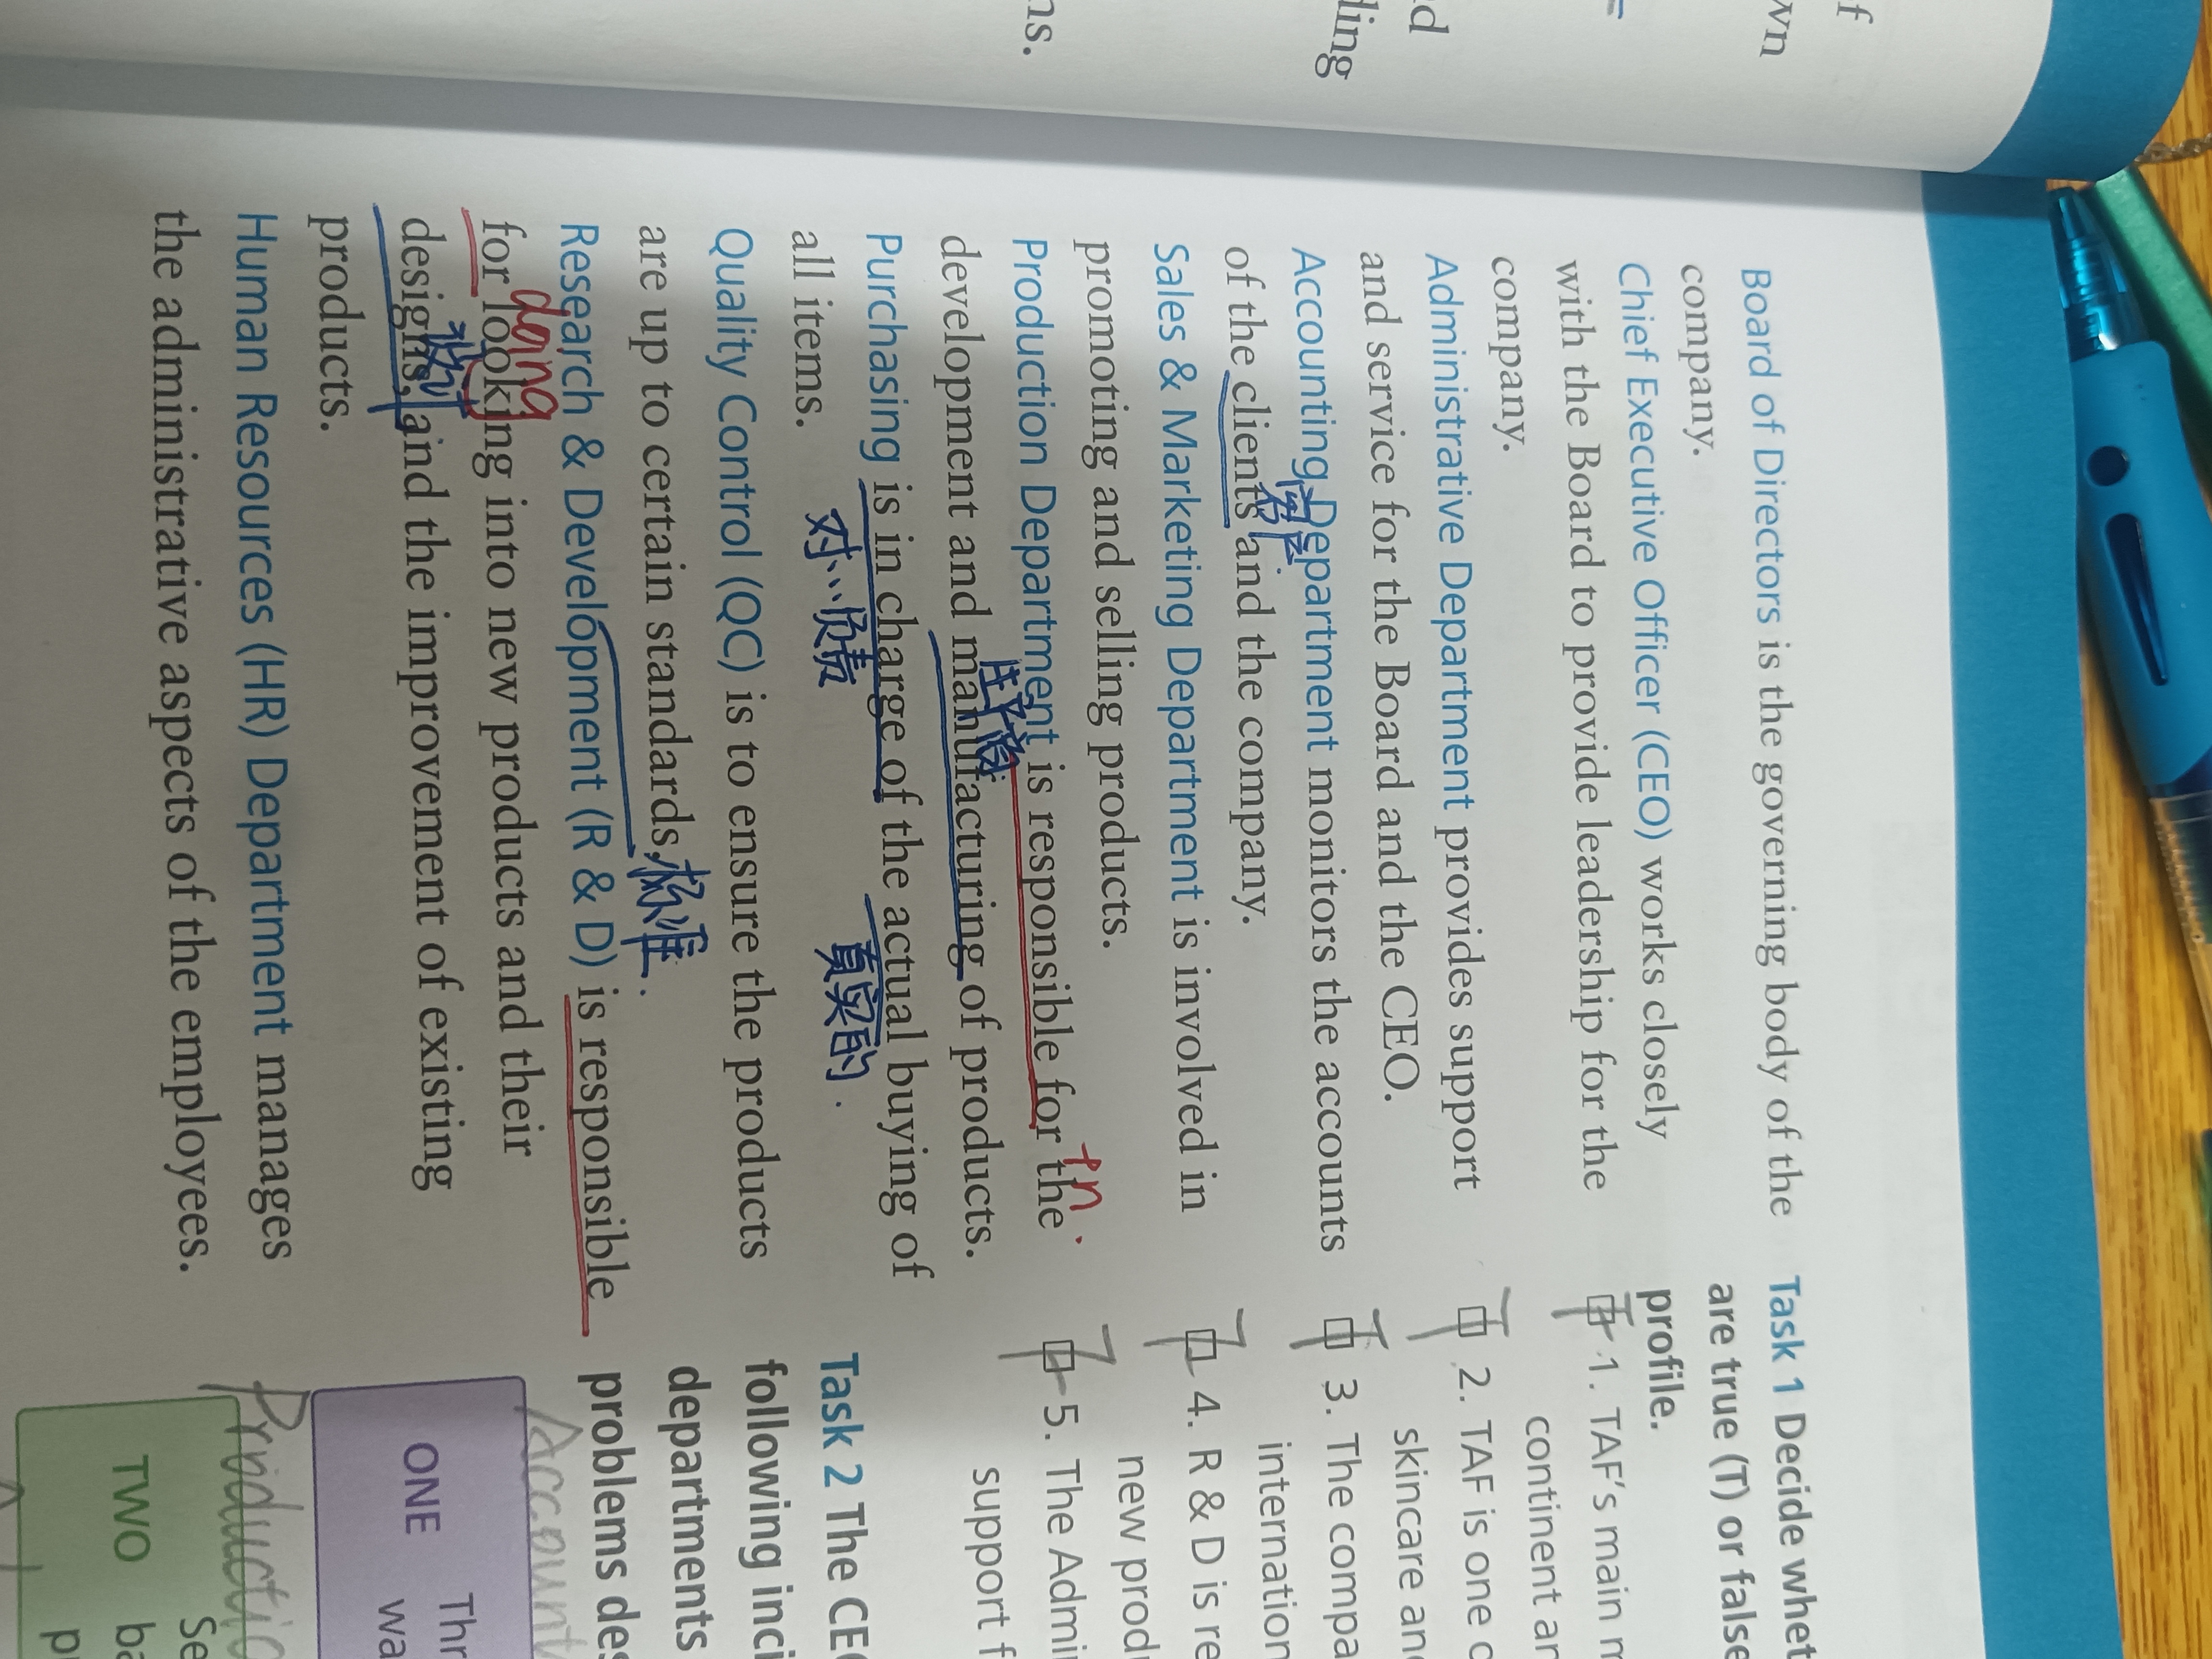 f
wn
d
ling
ns.
Board of Directors is the governing body of the
company.
Chief Executive Officer (CEO) works closely
with the Board to provide leadership for the
company.
Administrative Department provides support
and service for the Board and the CEO.
Accounting Department monitors the accounts
of the clients and the company.
Sales & Marketing Department is involved in
promoting and selling products.
+n.
Production Department is responsible for the
development and manufacturing of products.
Purchasing is in charge of the actual buying of
对…负责 真实的.
all items.
Quality Control (QC) is to ensure the products
are up to certain standards, 标准.
Research & Development (R & D) is responsible
doing
for looking into new products and their
designs, and the improvement of existing
products.
Human Resources (HR) Department manages
the administrative aspects of the employees.
Task 1 Decide whet
are true (T) or false
profile.
1. TAF's main m
continent an
T 2. TAF is one o
skincare and
T 3. The compa
internation
T 4. R & D is re
new prod
T 5. The Admi
support f
Task 2 The CE
following inci
departments
problems des
Account
ONE
Thr
wa
Productio
TWO
Se
ba
p